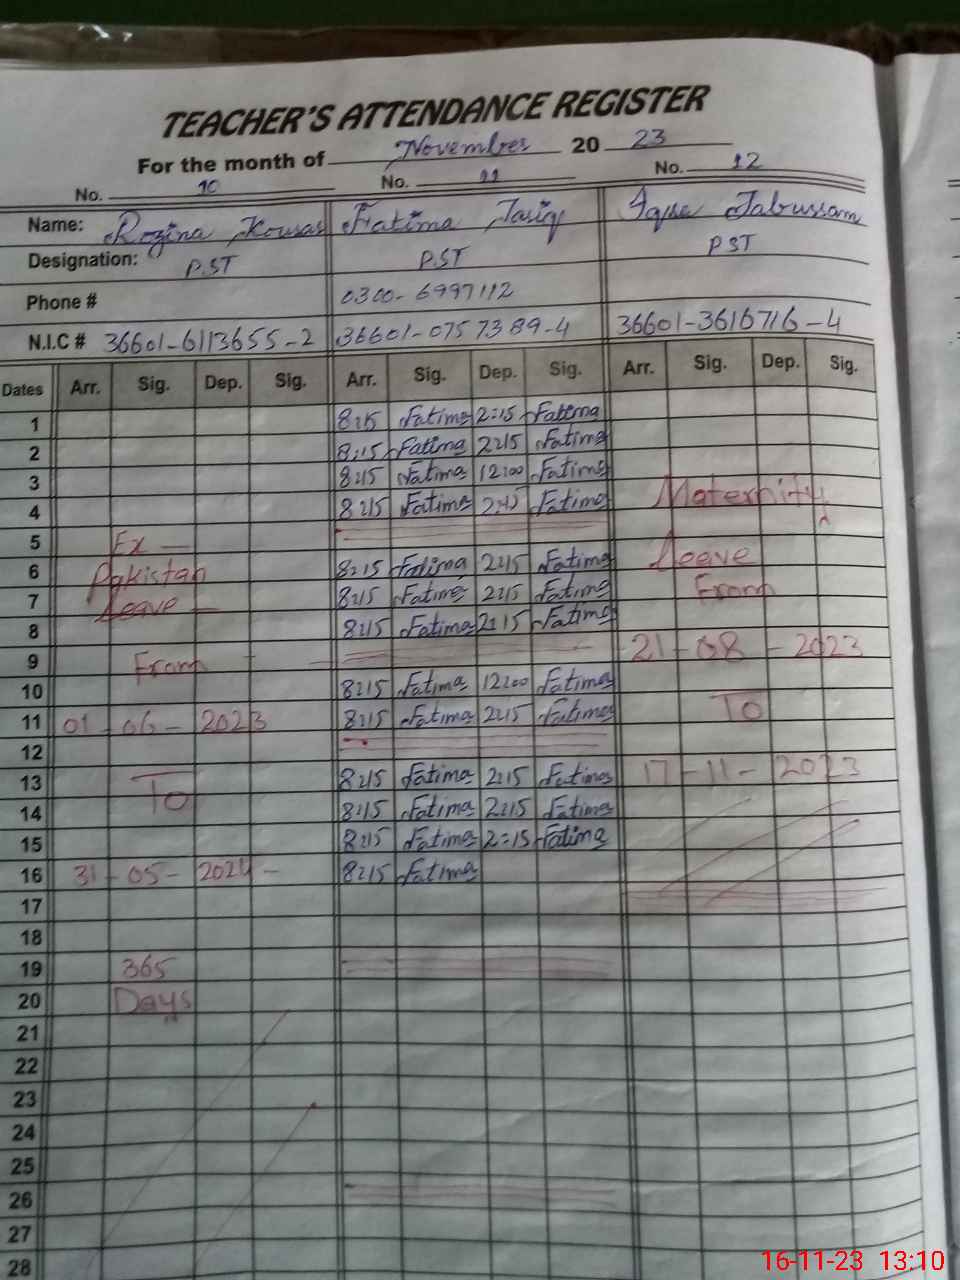 TEACHER'S ATTENDANCE REGISTER
For the month of November 20 23
No. 10 No. 11 No. 12
Name: Rozina Kousar Fatima Tariq Iqse Tabussam
Designation: P.ST P.ST PST
Phone # 0300-6997112
N.I.C # 36601-6113655-2 36601-0757389-4 36601-3616716-4
Dates Arr. Sig. Dep. Sig. Arr. Sig. Dep. Sig. Arr. Sig. Dep. Sig.
1 8:15 Fatima 2:15 Fatima
2 8:15 Fatima 2:15 Fatima
3 8:15 Fatima 12:00 Fatima
4 8:15 Fatima 2:15 Fatima Maternity
5 Ex -
6 Pakistan 8:15 Fatima 2:15 Fatima Leave
7 Leave - 8:15 Fatima 2:15 Fatima From
8 8:15 Fatima 2:15 Fatima
9 From 21-08-2023
10 8:15 Fatima 12:00 Fatima
11 01-06-2023 8:15 Fatima 2:15 Fatima To
12
13 To 8:15 Fatima 2:15 Fatima 17-11-2023
14 8:15 Fatima 2:15 Fatima
15 8:15 Fatima 2:15 Fatima
16 31-05-2024- 8:15 Fatima
17
18
19 365
20 Days
21
22
23
24
25
26
27
28
16-11-23 13:10